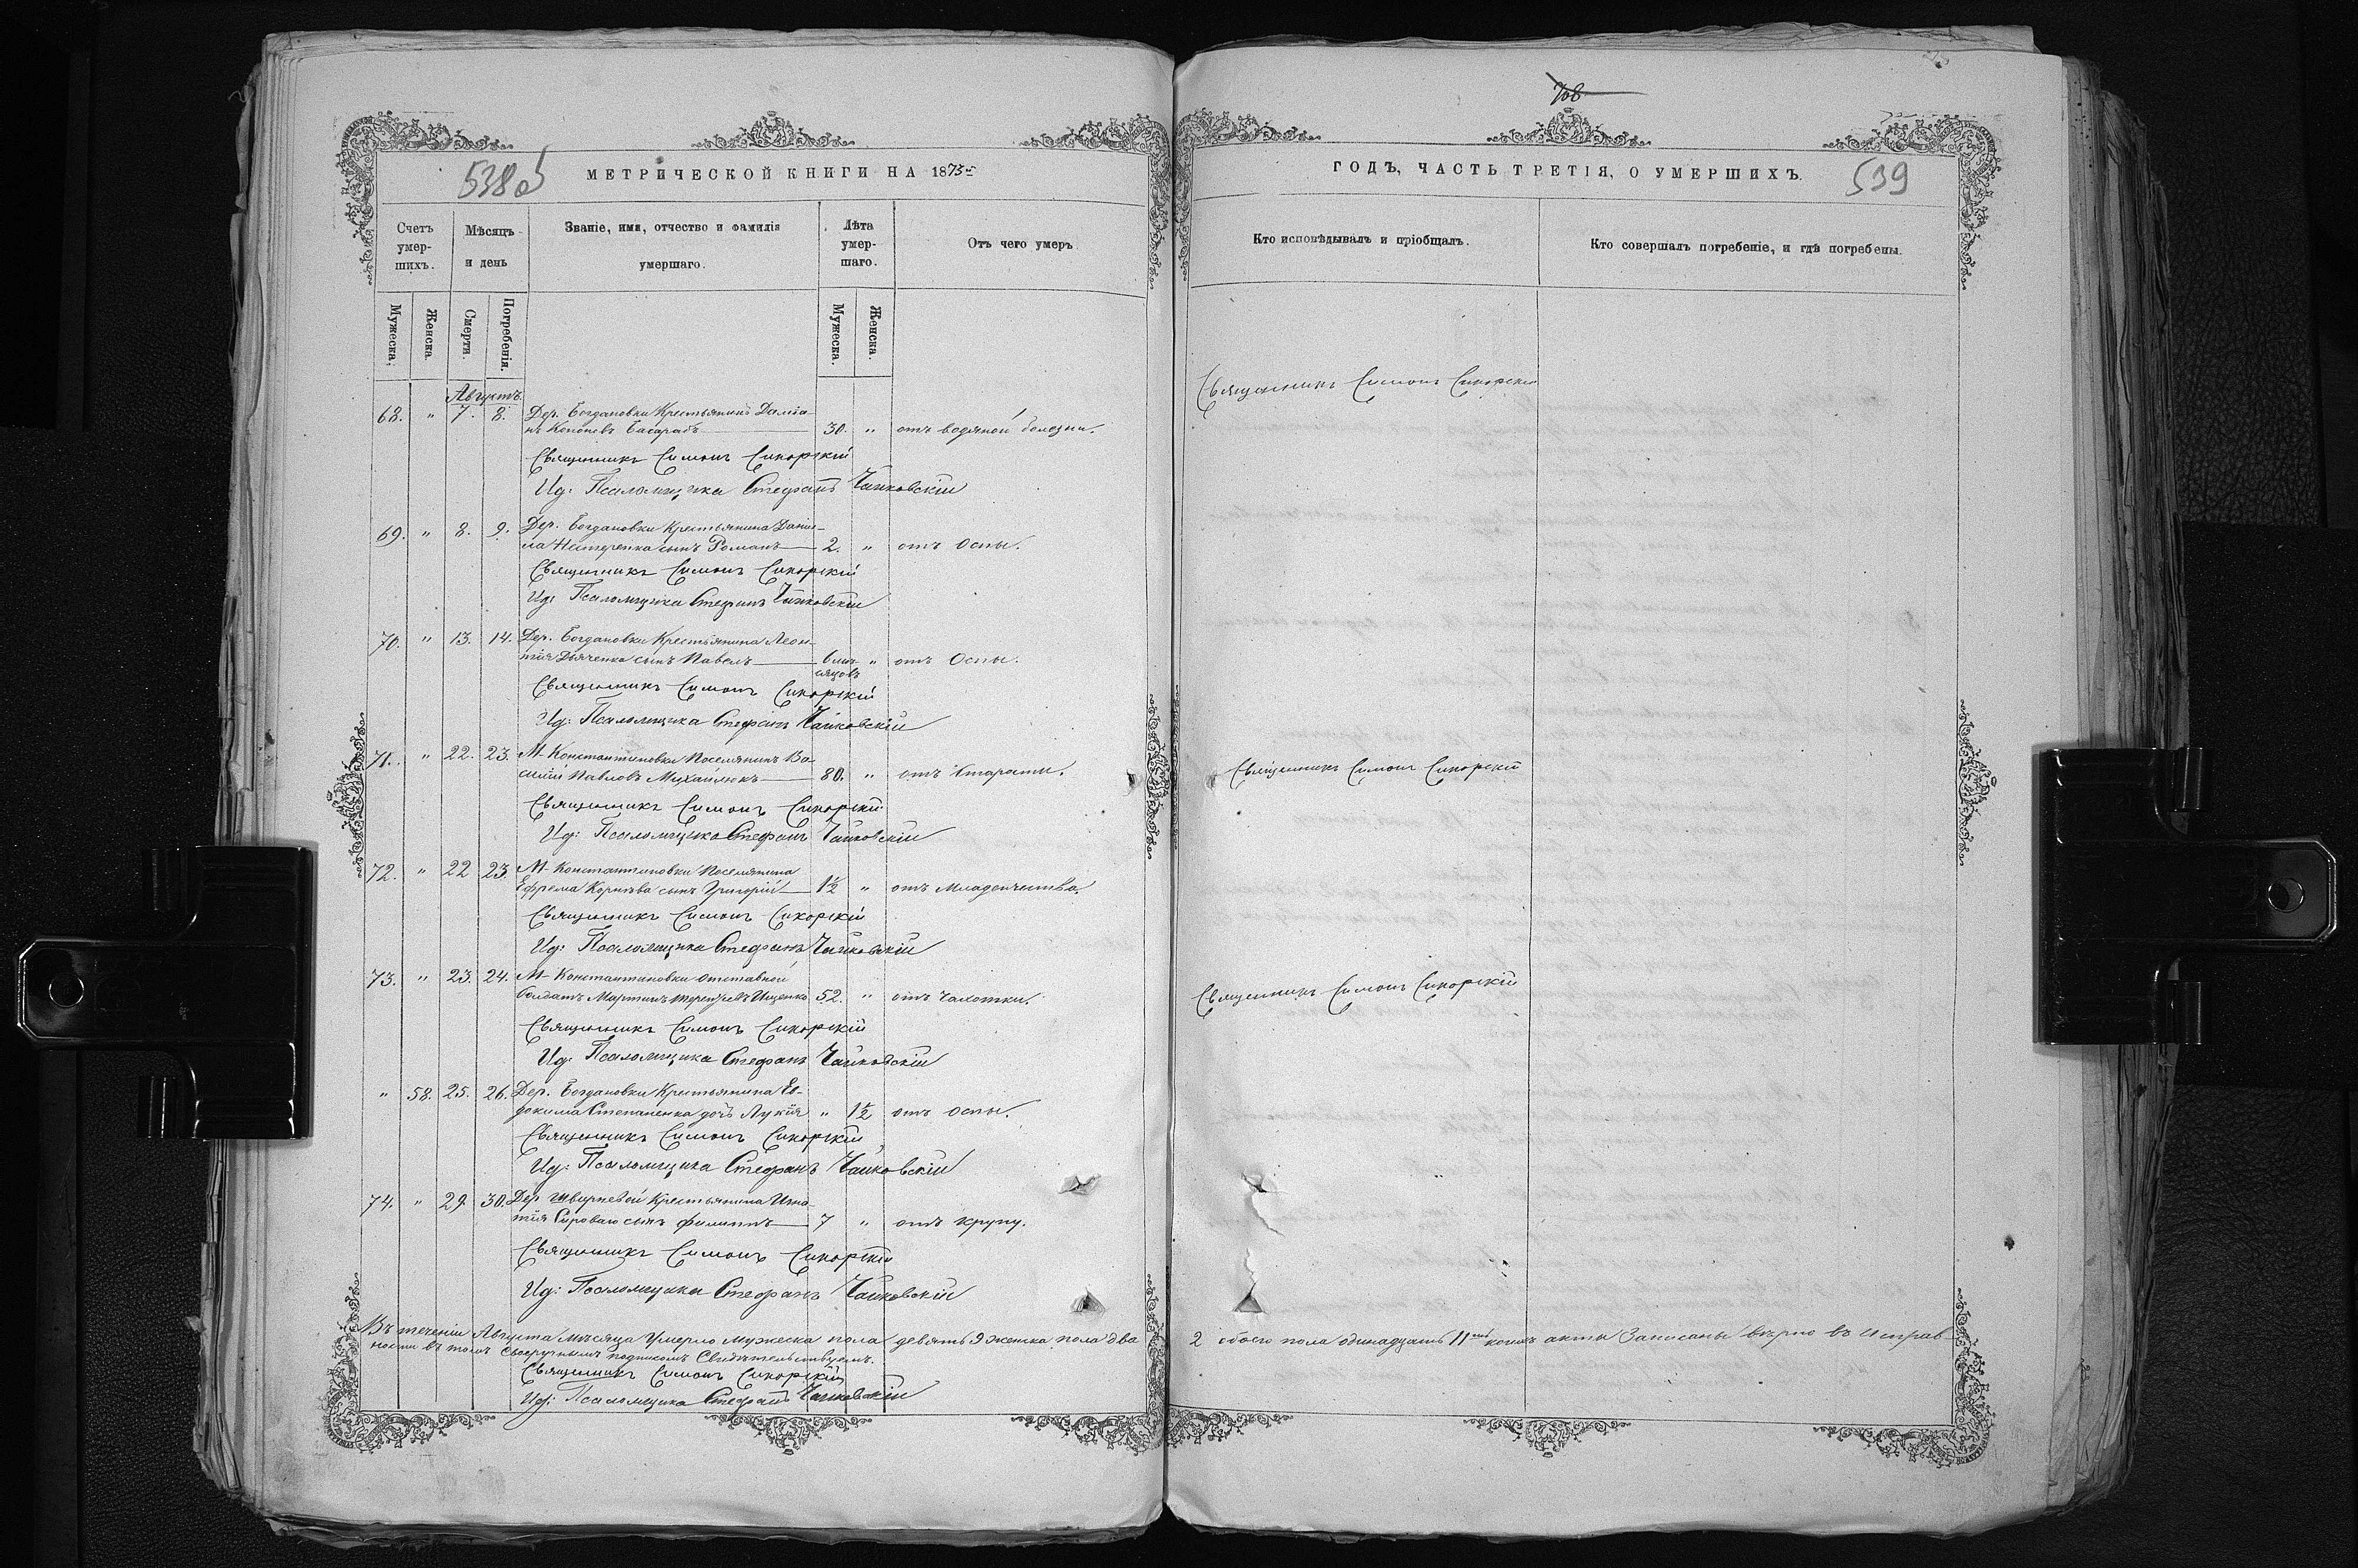 538 об
МЕТРИЧЕСКОЙ КНИГИ НА 1873й
Счетъ умер-шихъ.
Мѣсяцъ и день
Званіе, имя, отчество и фамилія умершаго.
Лѣта умер-шаго.
Отъ чего умеръ
Мужеска.
Женска.
Смерти.
Погребенія.
Мужеска.
Женска.
Августъ.
68. " 7. 8. Дер. Богдановки Крестьянинъ Даміа-
нъ Кононовъ Басарабъ 30. " отъ водяной болезни.
Священникъ Симонъ Сикорскій
Ид: Псаломщика Стефанъ Чайковскій
69. " 8. 9. Дер. Богдановки Крестьянина Дани-
ла Нестеренка сынъ Романъ 2. " отъ Оспы.
Священникъ Симонъ Сикорскій
Ид: Псаломщика Стефанъ Чайковскій
70. " 13. 14. Дер. Богдановки Крестьянина Леон-
тія Дьяченка сынъ Павелъ 6 мѣ- " отъ Оспы.
сяцовъ
Священникъ Симонъ Сикорскій
Ид: Псаломщика Стефанъ Чайковскій
71. " 22. 23. М. Константиновки Поселянинъ Ва-
силій Павловъ Михайлюкъ 80. " отъ Старости.
Священникъ Симонъ Сикорскій
Ид: Псаломщика Стефанъ Чайковскій
72. " 22 23. М. Константиновки Поселянина
Ефрема сынъ Григорій 1½ " отъ Младенчества.
Священникъ Симонъ Сикорскій
Ид: Псаломщика Стефанъ Чайковскій
73. " 23. 24. М. Константиновки отставной
Солдатъ Мартинъ Ищенко 52. " отъ Чахотки.
Священникъ Симонъ Сикорскій
Ид: Псаломщика Стефанъ Чайковскій
" 58. 25. 26. Дер. Богдановки Крестьянина Ев-
докима Степаненка дочь Лукія " 1½ отъ оспы.
Священникъ Симонъ Сикорскій
Ид: Псаломщика Стефанъ Чайковскій
74. " 29 30. Дер. Крестьянина Игна-
тія сынъ Филиппъ 7 " отъ крупу.
Священникъ Симонъ Сикорскій
Ид: Псаломщика Стефанъ Чайковскій
Въ теченіи Августа мѣсяца Умерло мужеска пола девять 9 женска пола два
ности въ томъ Своеручнымъ подписомъ Свидѣтельствуемъ.
Священникъ Симонъ Сикорскій
Ид: Псаломщика Стефанъ Чайковскій
708
ГОДЪ, ЧАСТЬ ТРЕТІЯ, О УМЕРШИХЪ.
539
Кто исповѣдывалъ и пріобщалъ.
Кто совершалъ погребеніе, и гдѣ погребены.
Священникъ Симонъ Сикорскій
Священникъ Симонъ Сикорскій
Священникъ Симонъ Сикорскій
2 обоего пола одинадцать 11 коихъ акты Записаны вѣрно въ исправ-